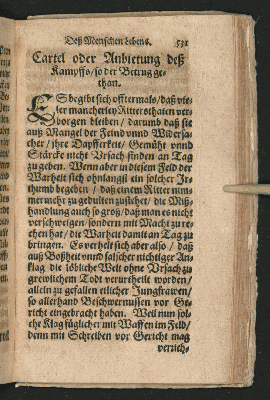 Deß Menschen Lebens. 531
Cartel oder Anbietung deß
Kampffs/ so der Betrug ge-
than.
ES begibt sich offtermals/ daß vie-
ler mancherley Ritterothaten ver-
borgen bleiben/ darumb daß sie
auß Mangel der Feind vnnd Widersa-
cher/ jhre Dapfferkeit/ Gemüht vnnd
Stärcke nicht Vrsach finden an Tag
zu geben. Wenn aber in diesem Feld der
Warheit sich ohnlangst ein solcher Jr-
thumb begeben/ daß einem Ritter nim-
mermehr zu gedulten zustehet/ die Miß-
handlung auch so groß/ daß man es nicht
verschweigen/ sondern mit Macht zu re-
chen hat/ die Warheit damit an Tag zu
bringen. Es verhelt sich aber also/ daß
auß Boßheit vnnd falscher nichtiger An-
klag die löbliche Welt ohne Vrsach zu
grewlichem Todt verurtheilt worden/
allein zu gefallen etlicher Jungfrawen/
so allerhand Beschwernussen vor Ge-
richt eingebracht haben. Weil nun sol-
che Klag füglicher mit Waffen im Feld/
denn mit Schreiben vor Gericht mag
verrich-